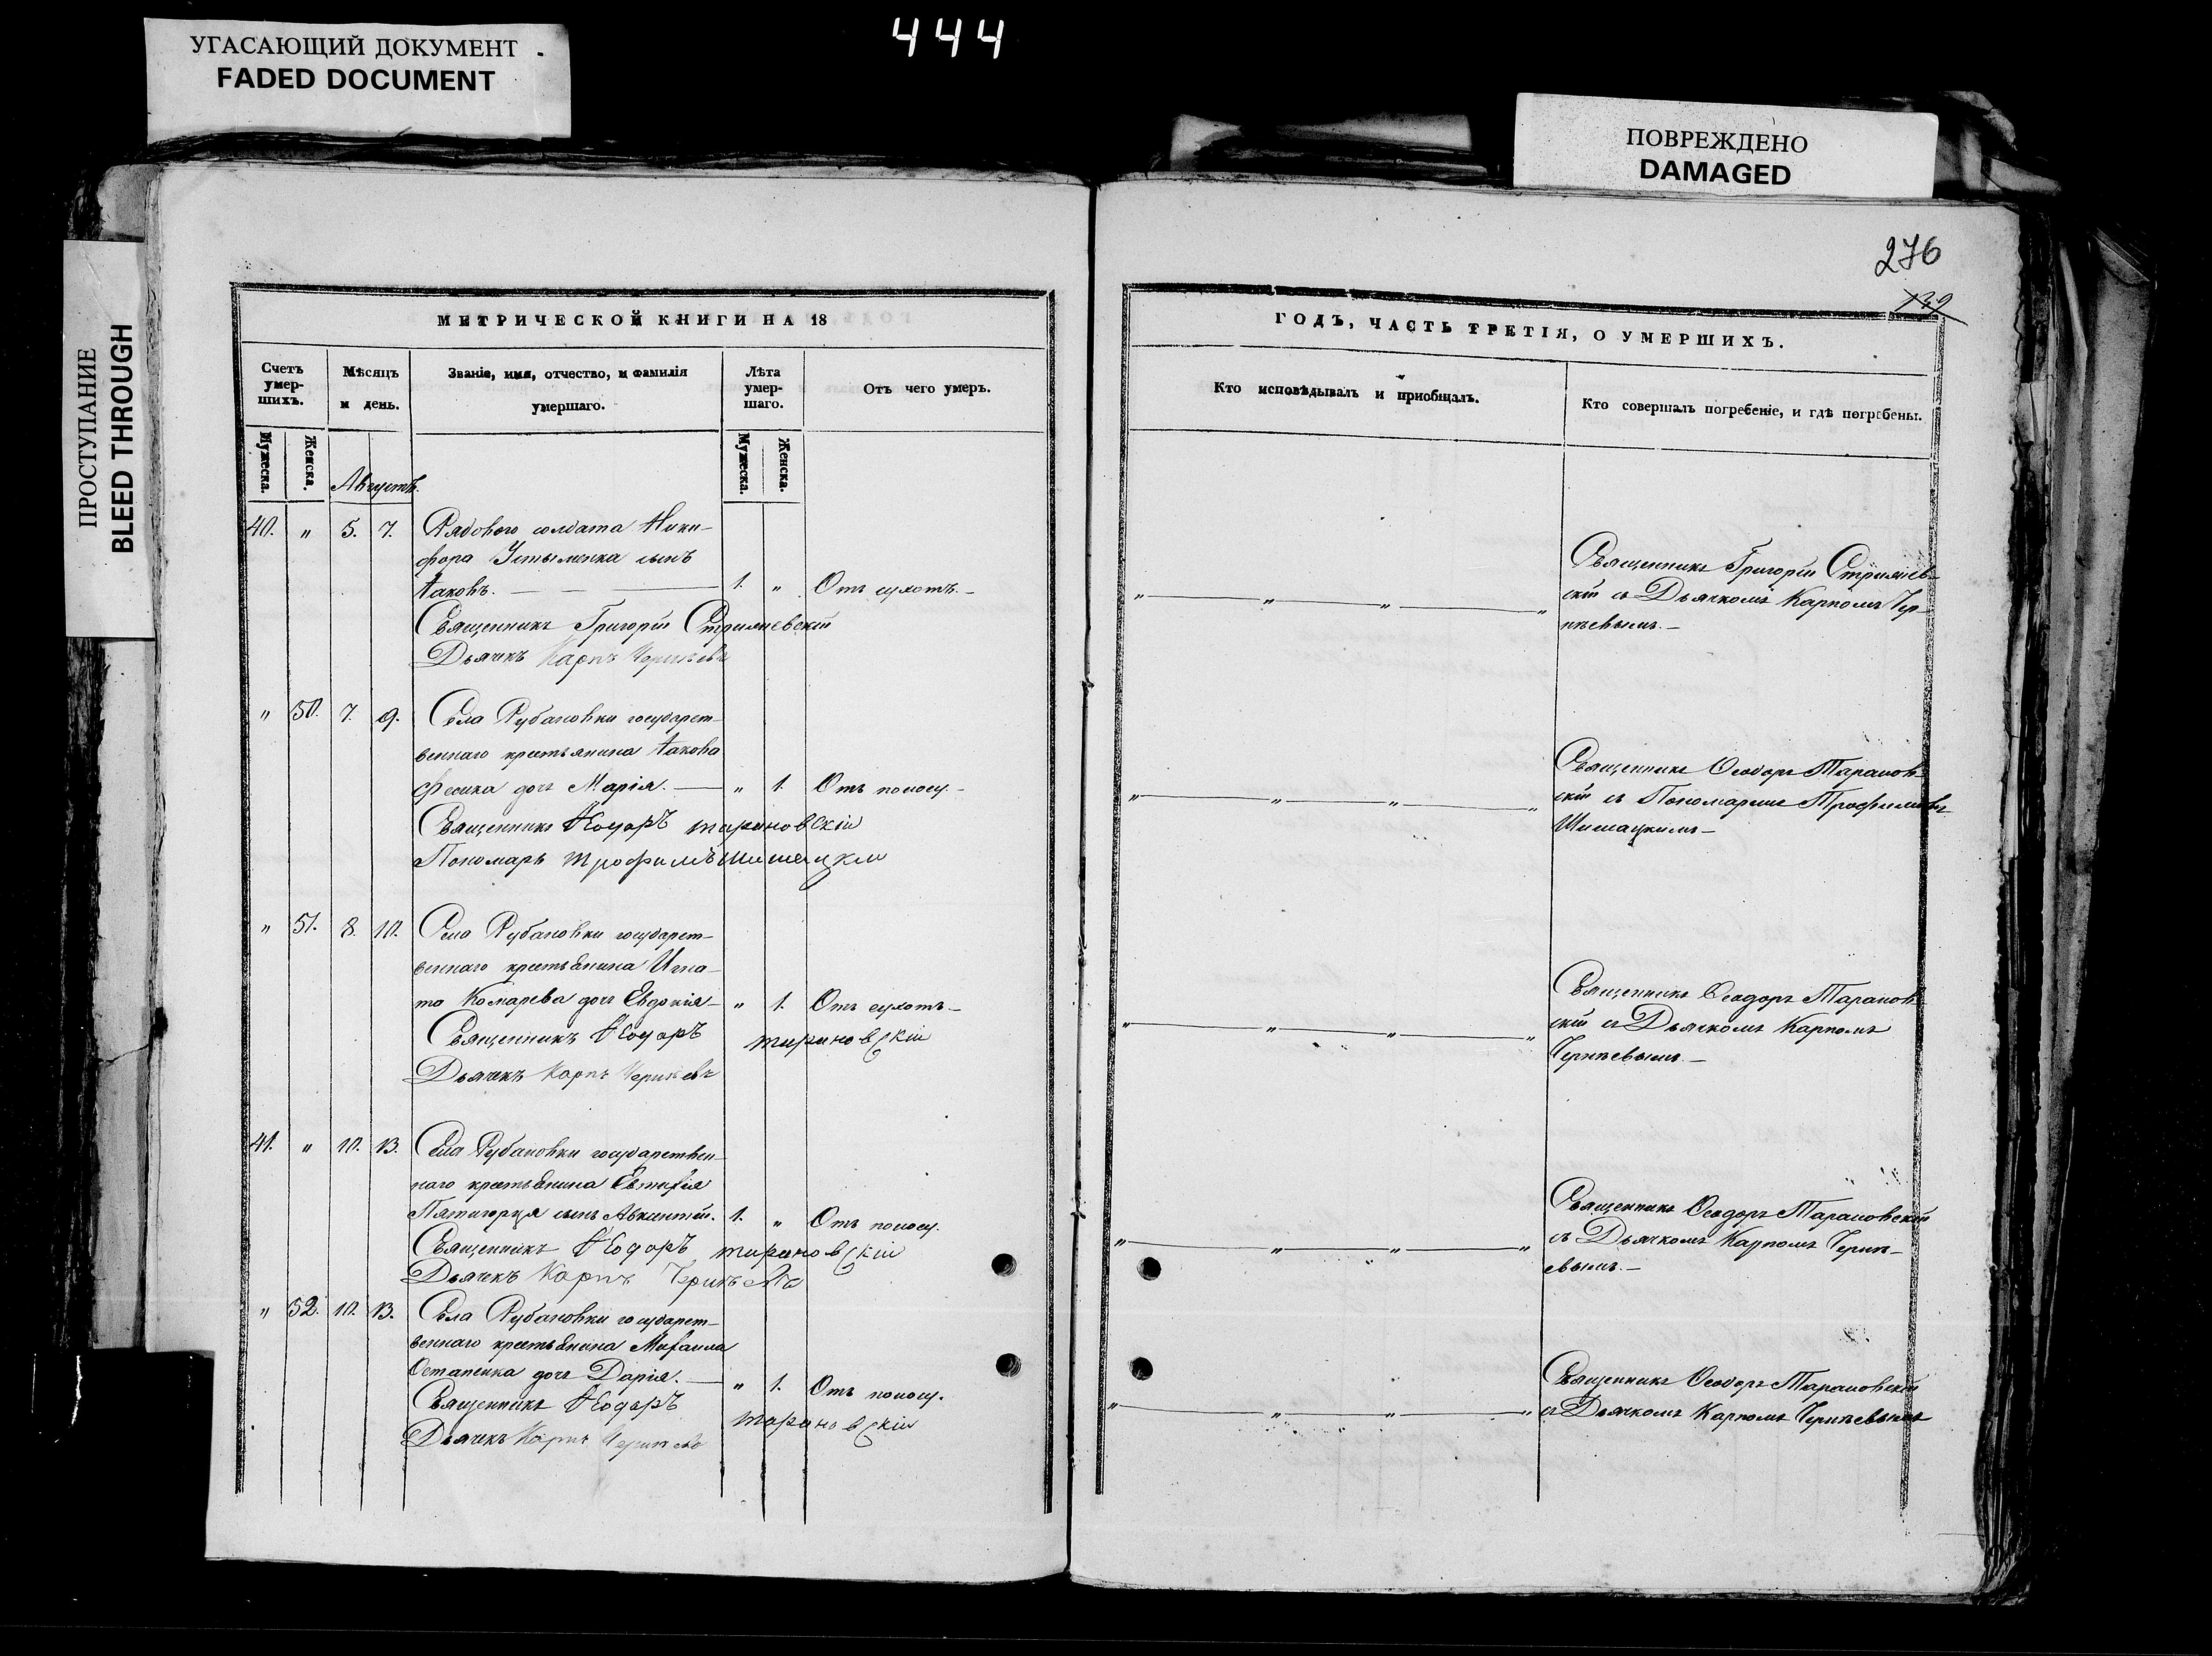 444
УГАСАЮЩИЙ ДОКУМЕНТ
FADED DOCUMENT
ПОВРЕЖДЕНО
DAMAGED
ПРОСТУПАНИЕ
BLEED THROUGH
276
139
МЕТРИЧЕСКОЙ КНИГИ НА 18
Счетъ умер-шихъ.
Мѣсяцъ и день.
Званіе, имя, отчество, и фамилія умершаго.
Лѣта умер-шаго.
Отъ чего умеръ.
Мужеска.
Женска.
Мужеска.
Женска.
Августъ.
40. " 5. 7. Рядового солдата Ники-
фора Устыменка сынъ
Іаковъ. 1. " Отъ сухотъ.
Священникъ Григорій
Дьячекъ Карпъ
" 50. 7. 9. Села Рубановки государст-
веннаго крестьянина Іакова
Фесика дочь Марія. " 1. Отъ поносу.
Священникъ Ѳеодоръ Тарановскій
Пономарь Трофимъ Шишацкій
" 51. 8. 10. Села Рубановки государст-
веннаго крестьянина Игна-
та Комарева дочь Евдокія " 1. Отъ сухотъ
Священникъ Ѳеодоръ Тарановскій
Дьячекъ Карпъ
41. " 10. 13. Села Рубановки государствен-
наго крестьянина Евтихія
Пятигорца сынъ Авксентій. 1. " Отъ поносу.
Священникъ Ѳеодоръ Тарановскій
Дьячекъ Карпъ
" 52. 10. 13. Села Рубановки государст-
веннаго крестьянина Михаила
Остапенка дочь Дарія. " 1. Отъ поносу.
Священникъ Ѳеодоръ Тарановскій
Дьячекъ Карпъ
ГОДЪ, ЧАСТЬ ТРЕТІЯ, О УМЕРШИХЪ.
Кто исповѣдывалъ и пріобщалъ.
Кто совершалъ погребеніе, и гдѣ погребены.
Священникъ Григорій
скій съ Дьячкомъ Карпомъ
Священникъ Ѳеодоръ Таранов-
скій съ Пономаремъ Трофимомъ
Шишацкимъ
Священникъ Ѳеодоръ Таранов-
скій съ Дьячкомъ Карпомъ
Священникъ Ѳеодоръ Тарановскій
съ Дьячкомъ Карпомъ
Священникъ Ѳеодоръ Тарановскій
съ Дьячкомъ Карпомъ